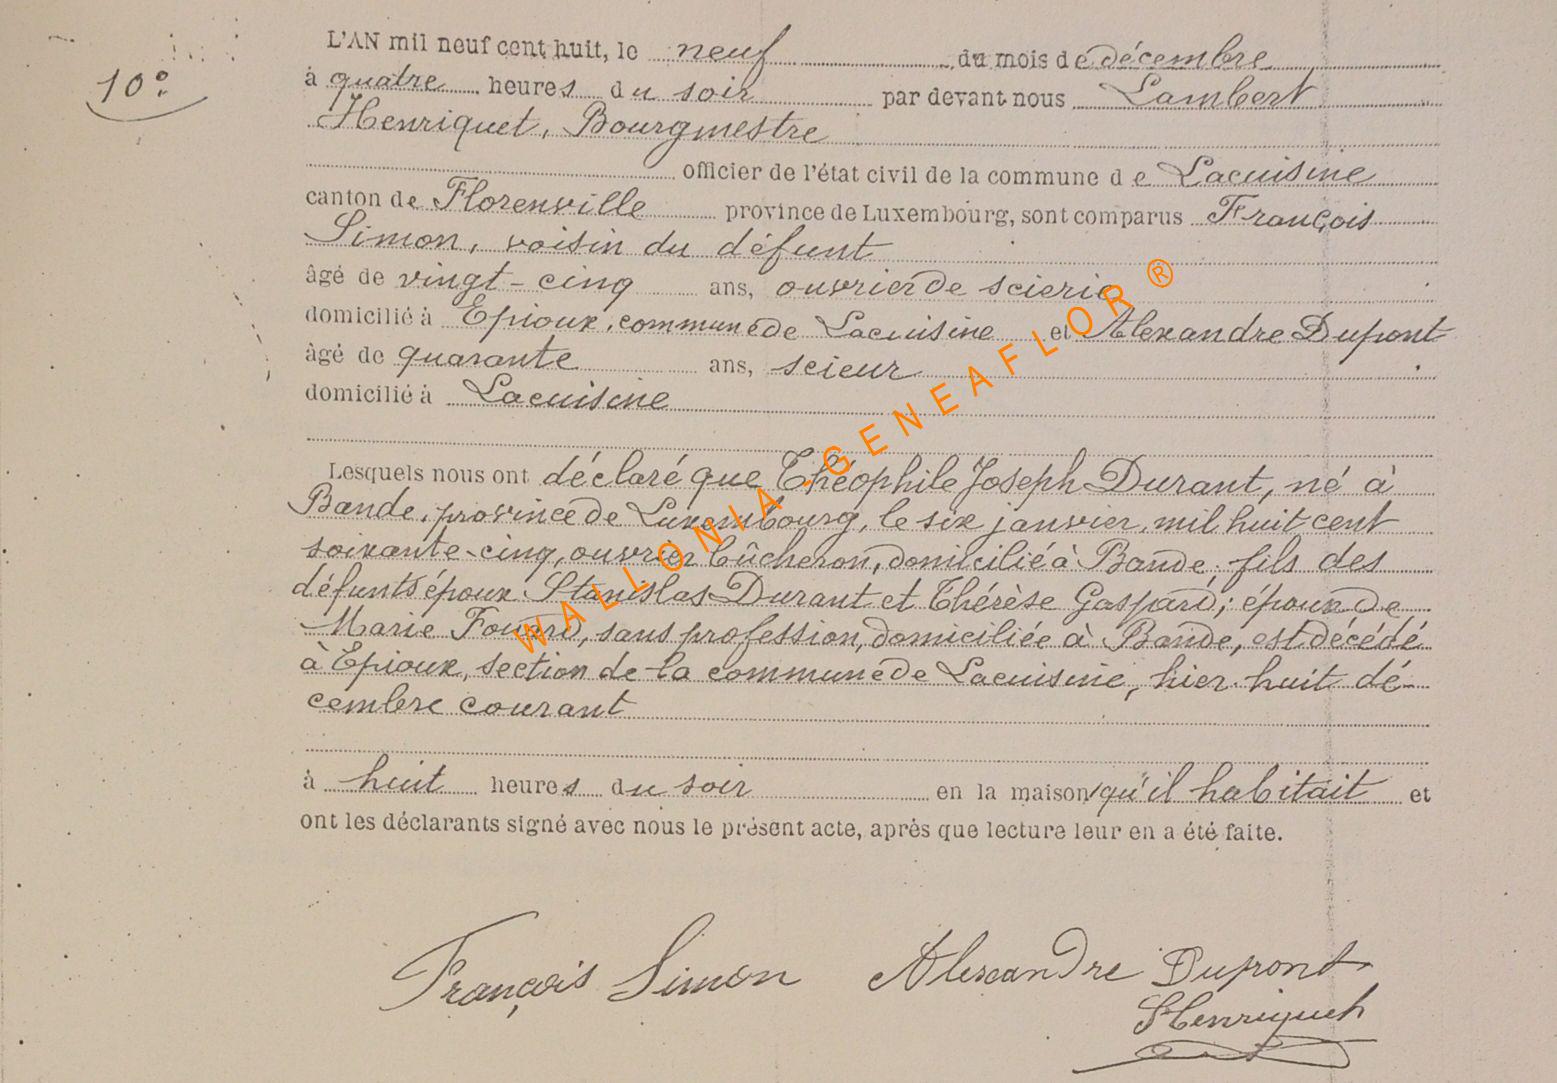 10°
L'AN mil neuf cent huit, le neuf du mois de décembre
à quatre heures du soir par devant nous Lambert
Henriquet, Bourgmestre
officier de l'état civil de la commune de Lacuisine
canton de Florenville province de Luxembourg, sont comparus François
Simon, voisin du défunt
âgé de vingt-cinq ans, ouvrier de scierie
domicilié à Epioux, commune de Lacuisine et Alexandre Dupont
âgé de quarante ans, scieur
domicilié à Lacuisine
Lesquels nous ont déclaré que Théophile Joseph Durant, né à
Bande, province de Luxembourg, le six janvier, mil huit cent
soixante-cinq, ouvrier bûcheron, domicilié à Bande, fils des
défunts époux Stanislas Durant et Thérèse Gaspard; époux de
Marie Fouard, sans profession, domiciliée à Bande, est décédé
à Epioux, section de la commune de Lacuisine, hier huit dé-
cembre courant
à huit heures du soir en la maison qu'il habitait et
ont les déclarants signé avec nous le présent acte, après que lecture leur en a été faite.
François Simon Alexandre Dupont
LHenriquet
WALLONIA-GENEAFLOR ®